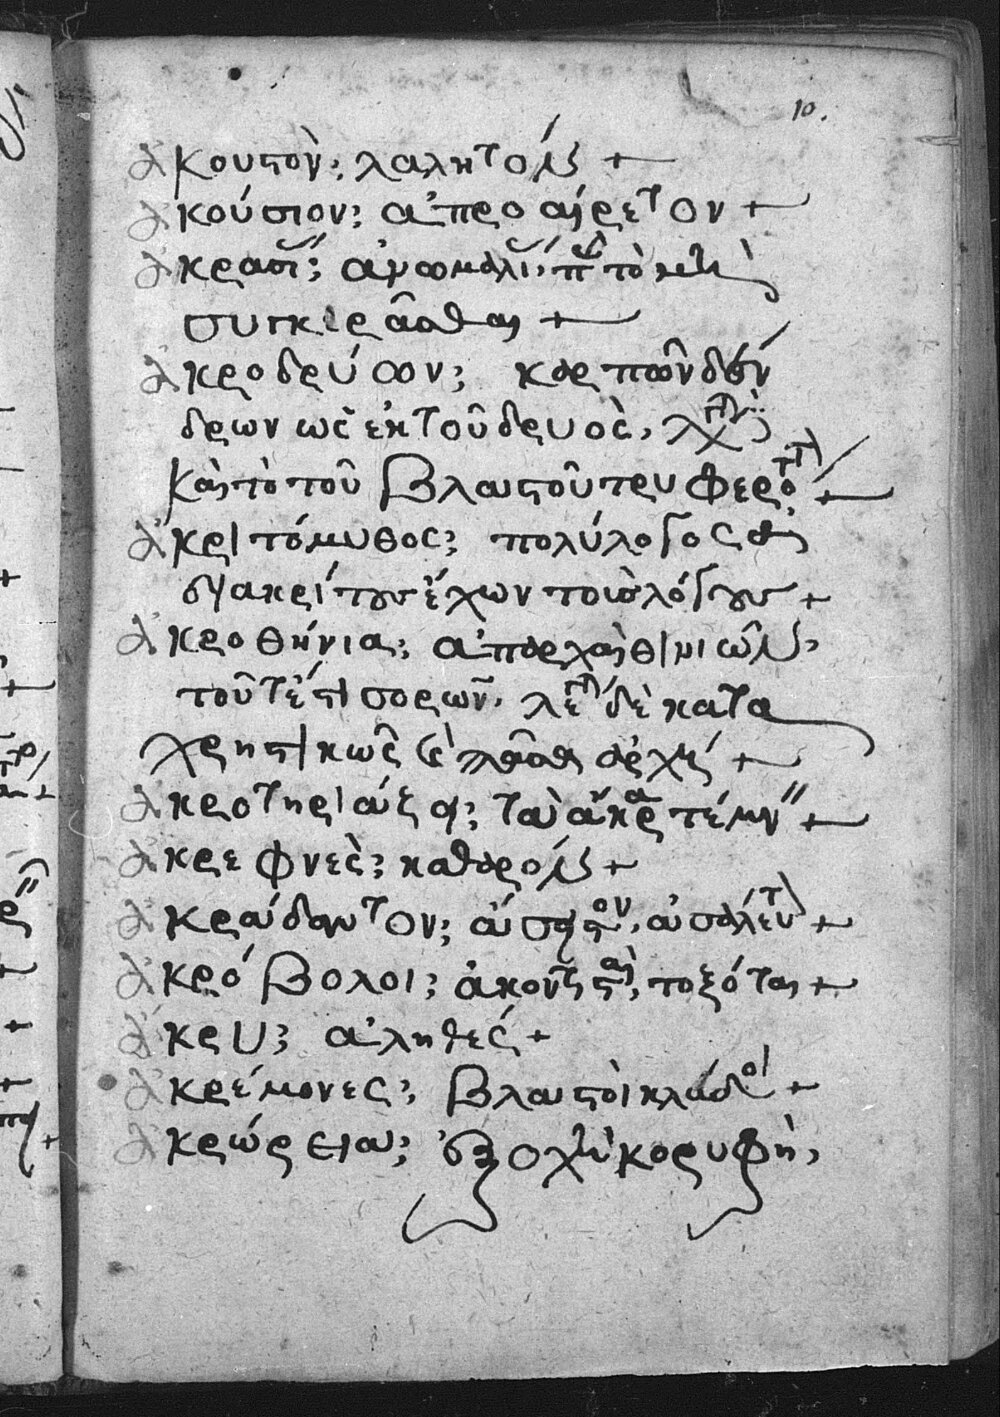 10.
ἀκουστὸν; λαλητόν +
ἀκούσιον; ἀπροαίρετον +
ἀκρασί; ἀνωμαλί, π τὸ μὴ
συγκιρᾶσθαι +
ἀκροδρύων; καρπῶν δέν
δρων ὡς ἐκ τοῦ δρυὸς,
καὶ τὸ τοῦ βλαστοῦ τρυφερο +
ἀκριτόμυθος; πολύλογος
ἀκρίτους ἔχων τοὺς λόγους +
ἀκροθήνια; ἀπαρχαὶ θινιῶν,
τουτέστι σορῶν, λε δὲ κατα
χρηστικῶς ἀρχή +
ἀκροτηριάξαι; τὰ ἄκρα τέμν +
ἀκρεφνὲς; καθαρόν +
ἀκράδαντον; ἄσειστον, ἀσάλευτ +
ἀκρόβολοι; ἀκοντισταὶ, τοξόται +
ἄκρυ; ἀληθές +
ἀκρέμονες; βλαστοὶ κλάδοι +
ἀκρώρεια; ἐξοχὴ κορυφὴ,